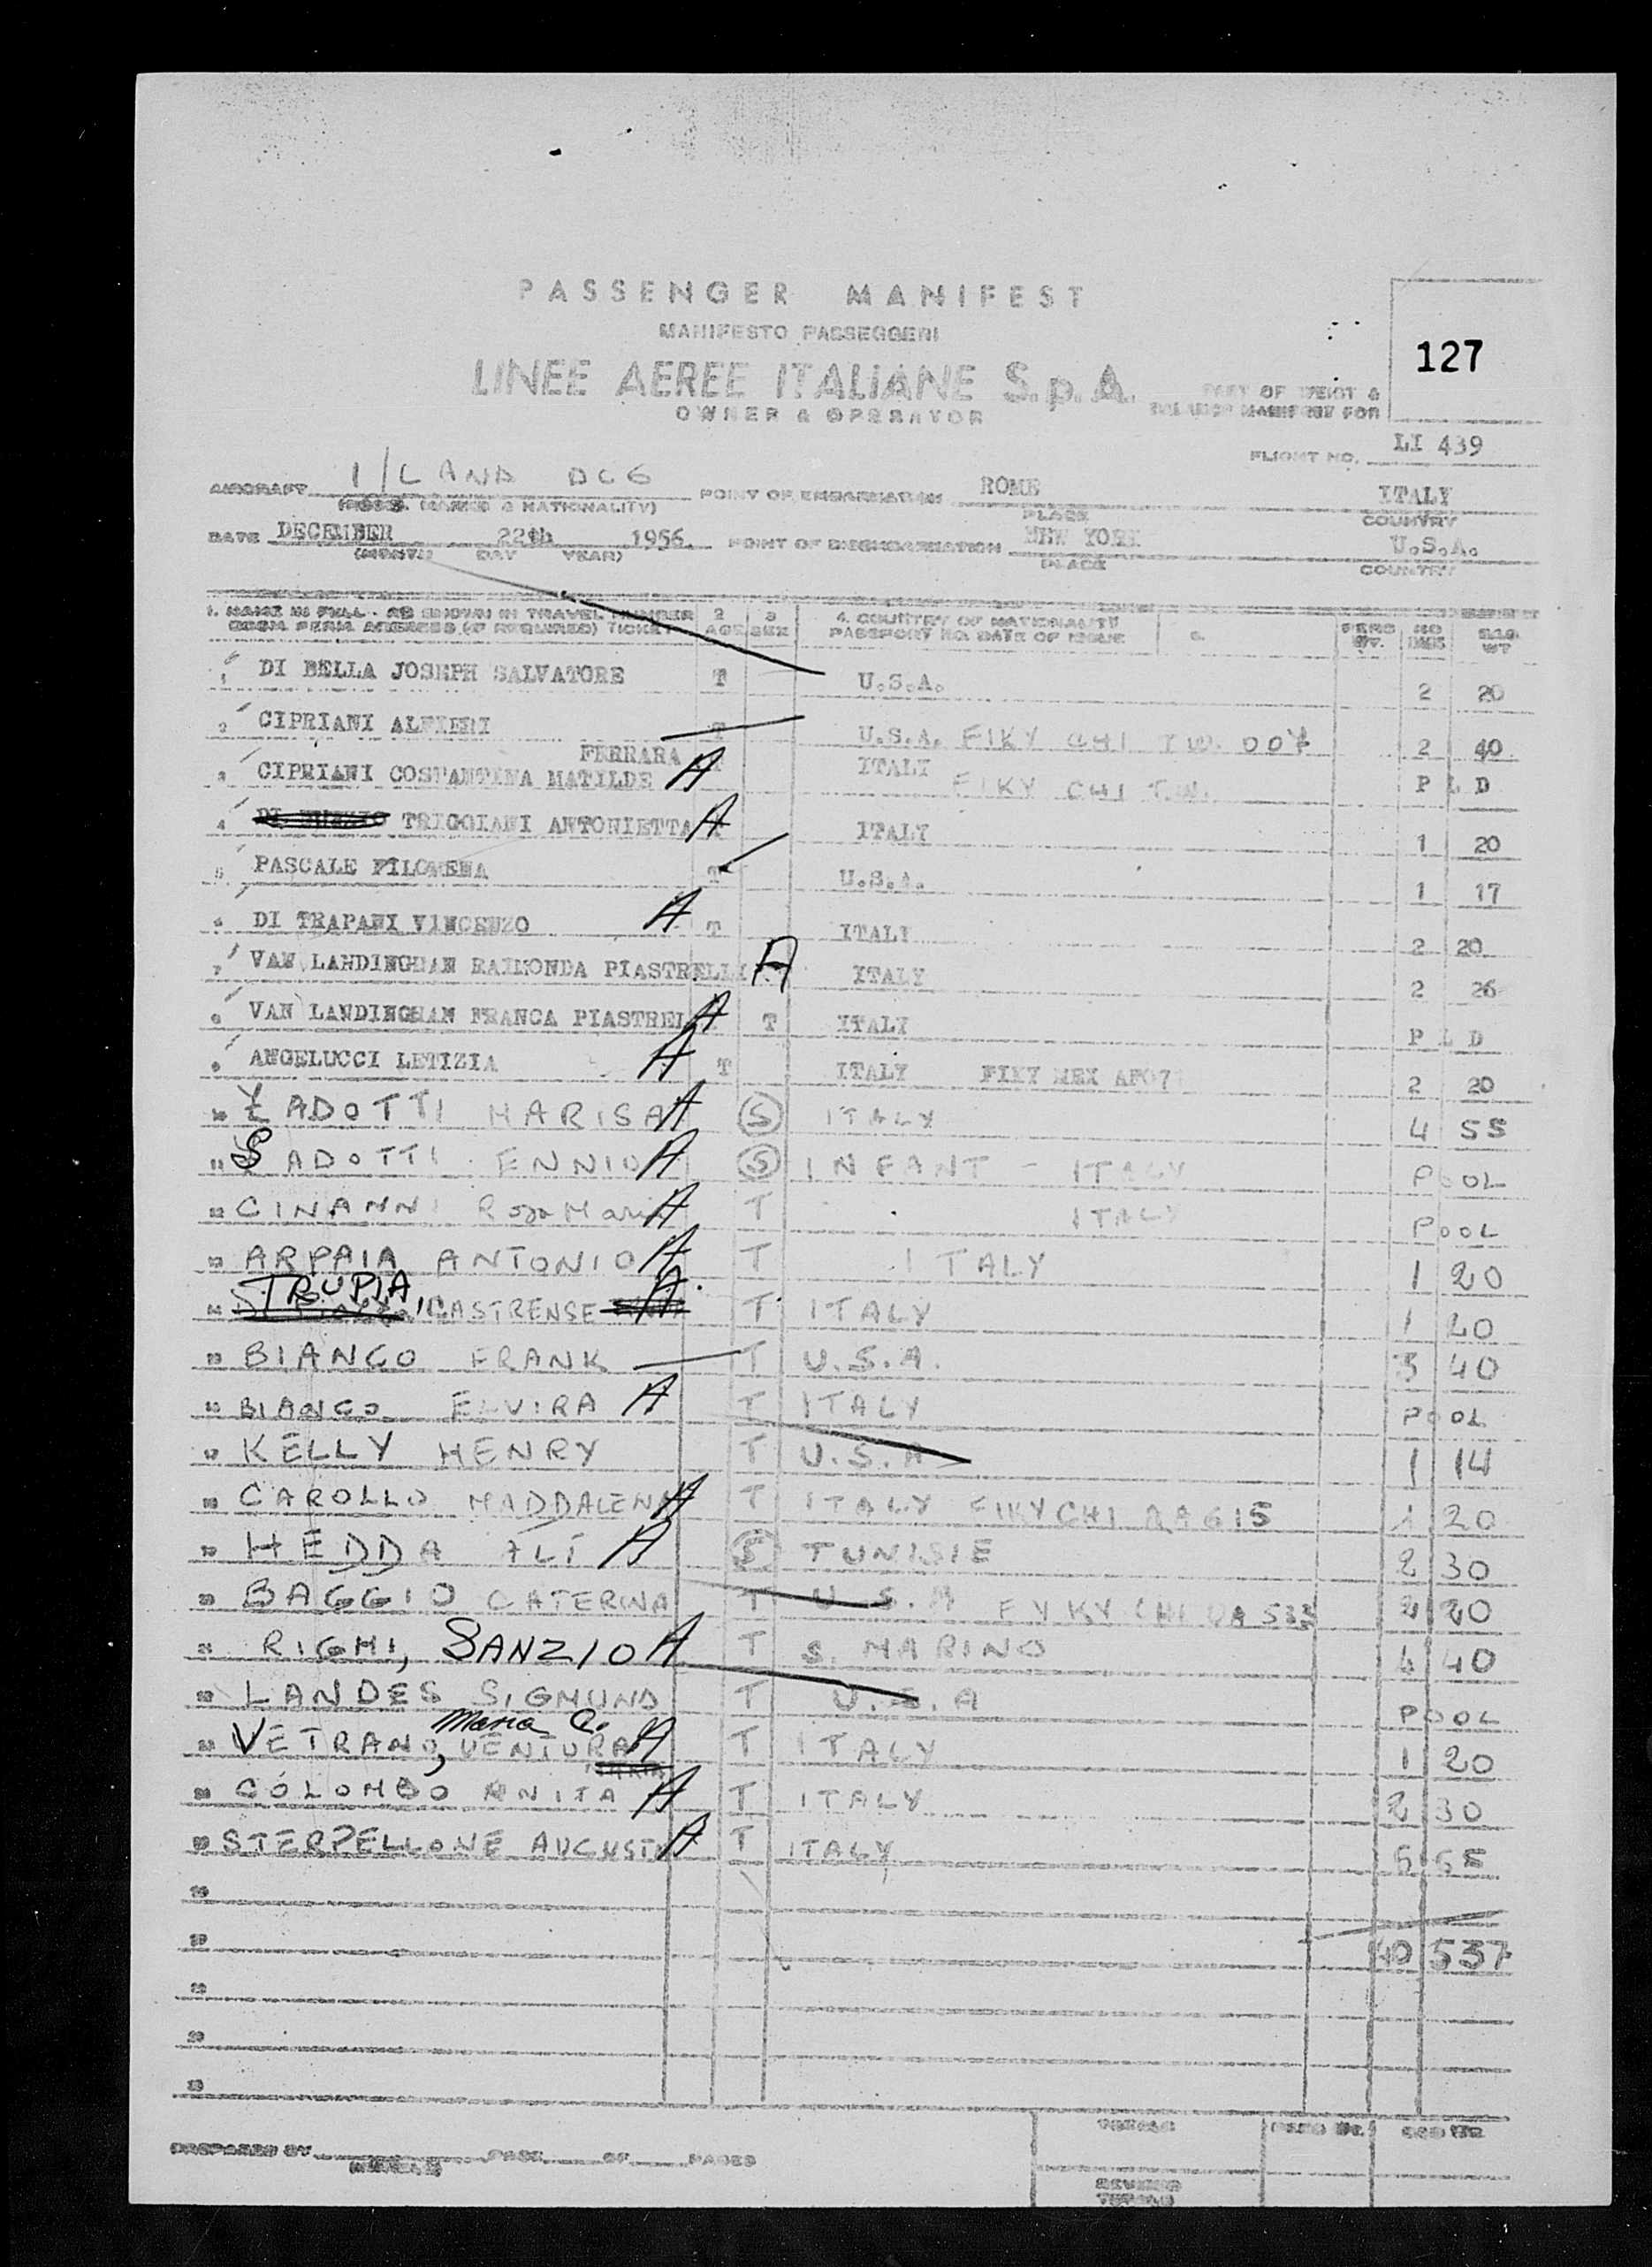 PASSENGER MANIFEST
MANIFESTO PASSEGGERI
LINEE AEREE ITALIANE S.p.A.
OWNER & OPERATOR
127
PART OF WEIGT &
BALANCE MANIFEST FOR
FLIGHT NO. LI 439
AIRCRAFT I/LAND DC6 POINT OF EMBARKATION ROME ITALY
(REGS. MARKS & NATIONALITY) PLACE COUNTRY
DATE DECEMBER 22th 1956. POINT OF DISEMBARKATION NEW YORK U.S.A.
(MONTH DAY YEAR) PLACE COUNTRY
1. NAME IN FULL - AS SHOWN IN TRAVEL 2 3 4. COUNTRY OF NATIONALITY PERS NO BAG
PERM ADDRESS (IF REQUIRED) TICKET AGE SEX PASSPORT NO. DATE OF ISSUE WT. WT
1 DI BELLA JOSEPH SALVATORE T U.S.A. 2 20
2 CIPRIANI ALFIERI T U.S.A. FIKY CHI T.W. 007 2 40
FERRARA
3 CIPRIANI COSTANTINA MATILDE A T ITALY FIKY CHI T.W. P L D
4 TRIGGIANI ANTONIETTA A ITALY 1 20
5 PASCALE FILOMENA T U.S.A. 1 17
6 DI TRAPANI VINCENZO A T ITALY 2 20
7 VAN LANDINGHAM RAIMONDA PIASTRELLI A ITALY 2 26
8 VAN LANDINGHAM FRANCA PIASTREL A T ITALY P L D
9 ANGELUCCI LETIZIA A T ITALY FIKY MEX AF07 2 20
10 ZADOTTI MARISA A S ITALY 4 55
11 SADOTTI ENNIO A S INFANT - ITALY POOL
12 CINANNI Rosa Maria A T ITALY POOL
13 ARPAIA ANTONIO A T ITALY 1 20
TRUPIA,
14 CASTRENSE A T ITALY 1 20
15 BIANCO FRANK T U.S.A. 3 40
16 BIANCO ELVIRA A T ITALY POOL
17 KELLY HENRY T U.S.A 1 14
18 CAROLLO MADDALENA A T ITALY FIKY CHI AA615 1 20
19 HEDDA ALI A S TUNISIE 2 30
20 BAGGIO CATERINA T U.S.A FYKY CHI UA 533 2 20
21 RIGHI, SANZIO A T S. MARINO 4 40
22 LANDES SIGMUND T U.S.A POOL
Maria C.
23 VETRANO, VENTURA A T ITALY 1 20
24 COLOMBO ANITA A T ITALY 2 30
25 STERPELLONE AUGUSTO A T ITALY 5 55
26
27 40 537
28
29
30
TOTALS PERS WT. BAG WT.
PREPARED BY PAGE OF PAGES
REVISED
TOTALS